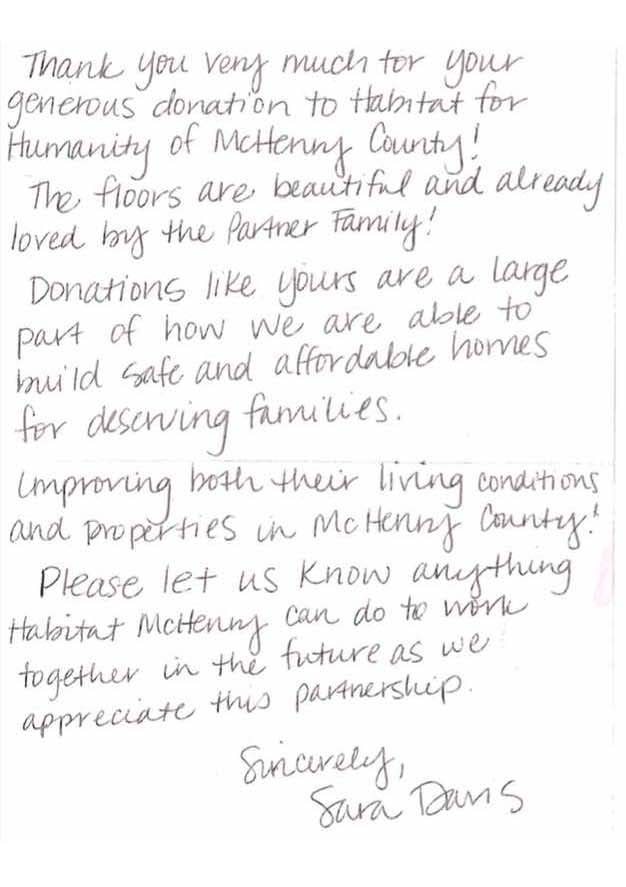 Thank you very much for your
generous donation to Habitat for
Humanity of McHenry County!
The floors are beautiful and already
loved by the Partner Family!
Donations like yours are a large
part of how we are able to
build safe and affordable homes
for deserving families.
Improving both their living conditions
and properties in McHenry County!
Please let us know anything
Habitat McHenry can do to work
together in the future as we
appreciate this partnership.
Sincerely,
Sara Davis